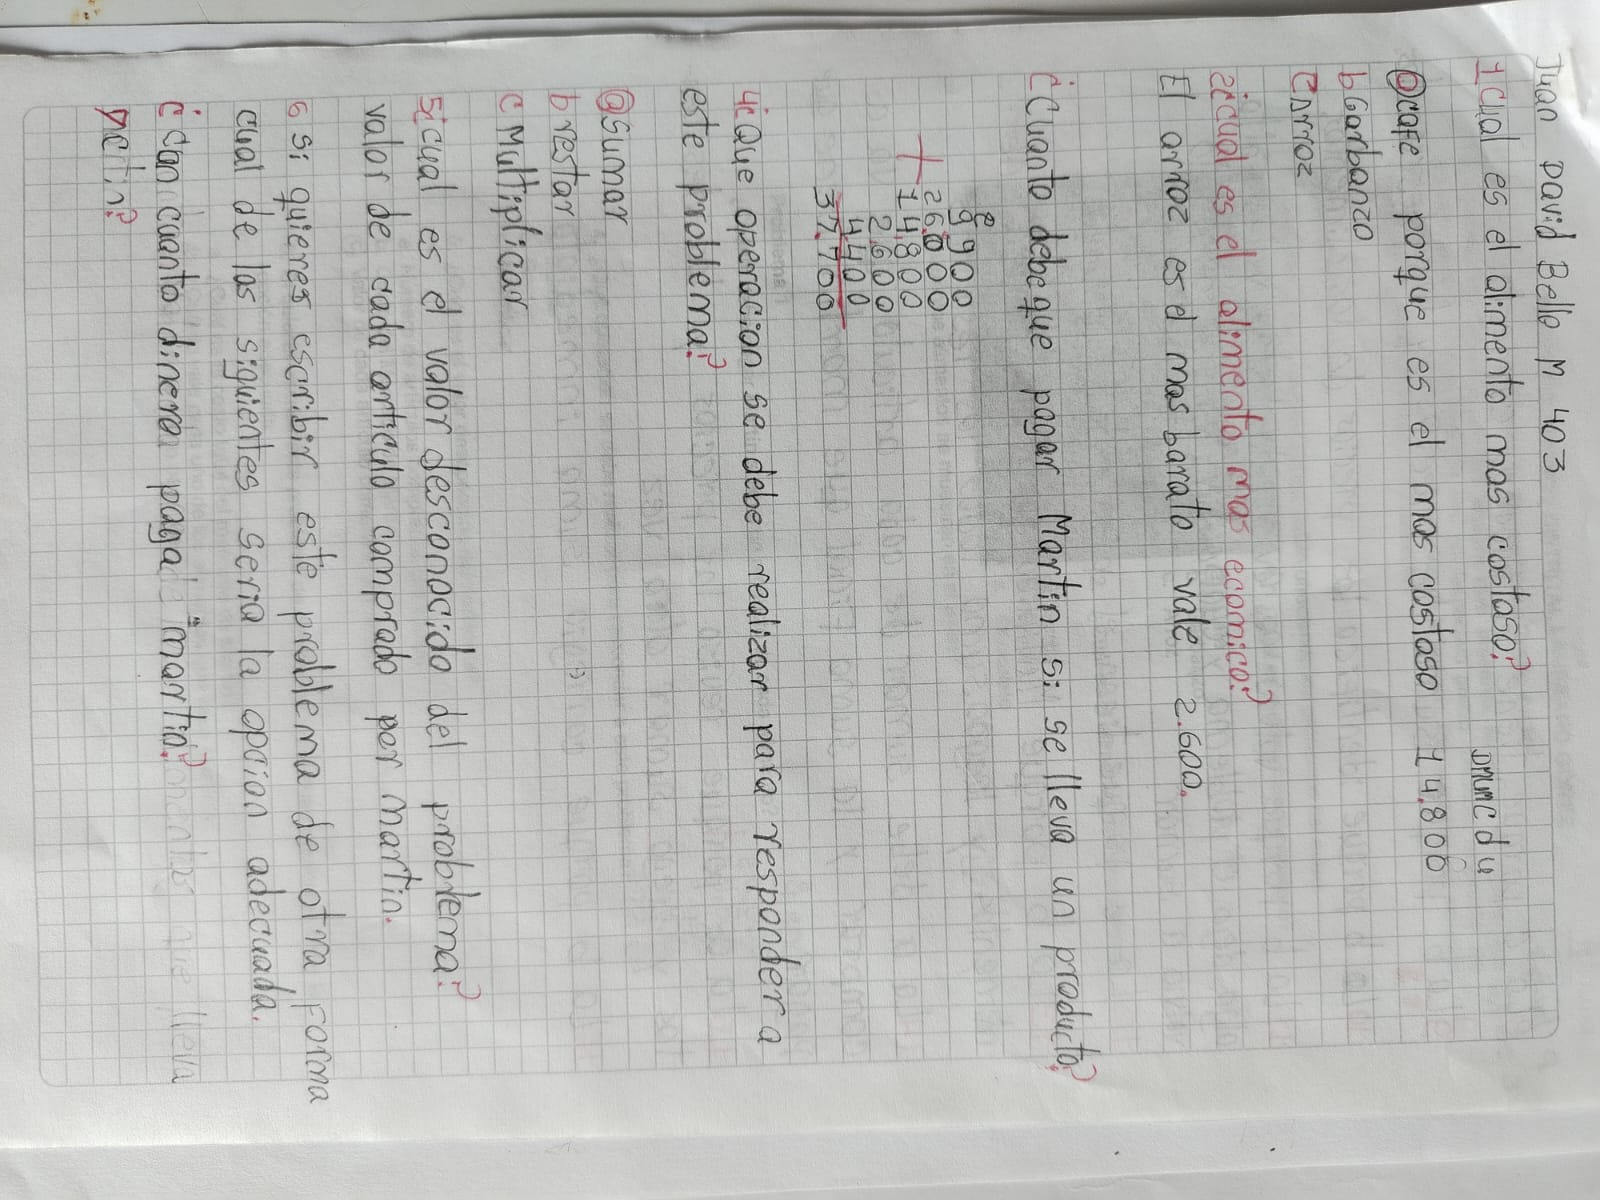 Juan David Bello M 403
1 Cual es el alimento mas costoso? DMUMC d u
a cafe porque es el mas costoso 14.800
b Garbanzo
C Arroz
2¿cual es el alimento mas ecomico?
El arroz es el mas barato vale 2.600.
¿Cuanto debe que pagar Martin si se lleva un producto?
9 900
26.000
+ 14.800
2.600
4.400
37.700
4¿Que operacion se debe realizar para responder a
este problema?
a sumar
b restar
c Multiplicar
5¿cual es el valor desconocido del problema?
valor de cada articulo comprado por martin.
6 si quieres escribir este problema de otra forma
cual de las siguientes seria la opcion adecuada.
¿con cuanto dinero paga martin?